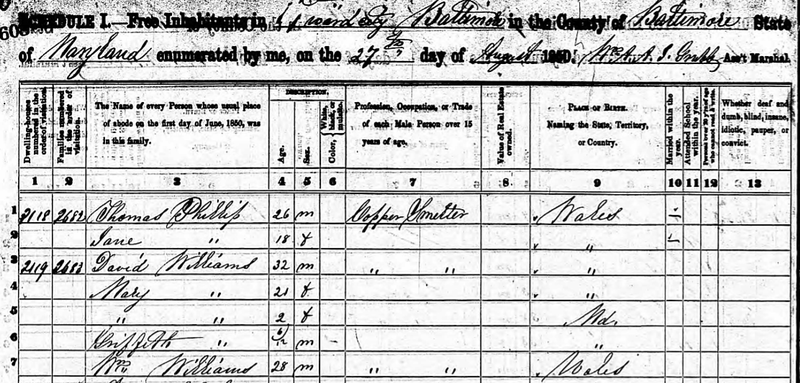 SCHEDULE I.—Free Inhabitants in ward City Baltimore in the County of Baltimore State
of Maryland enumerated by me, on the 27th day of August 1850. Ass't Marshal.
DESCRIPTION.
Dwelling-houses numbered in the order of visitation.
Families numbered in the order of visitation.
The Name of every Person whose usual place of abode on the first day of June, 1850, was in this family.
Age.
Sex.
Color, White, black, or mulatto.
Profession, Occupation, or Trade of each Male Person over 15 years of age.
Value of Real Estate owned.
PLACE OF BIRTH. Naming the State, Territory, or Country.
Married within the year.
Attended School within the year.
Whether deaf and dumb, blind, insane, idiotic, pauper, or convict.
1 2 3 4 5 6 7 8 9 10 11 12 13
1 2118 2682 Thomas Phillip 26 m Copper Smelter Wales 1
2 Jane " 18 f " 1
3 2119 2683 David Williams 32 m " " "
4 Mary " 21 f "
5 " " 2 f Md.
6 Griffith " 6/12 m "
7 Wm Williams 28 m " " Wales